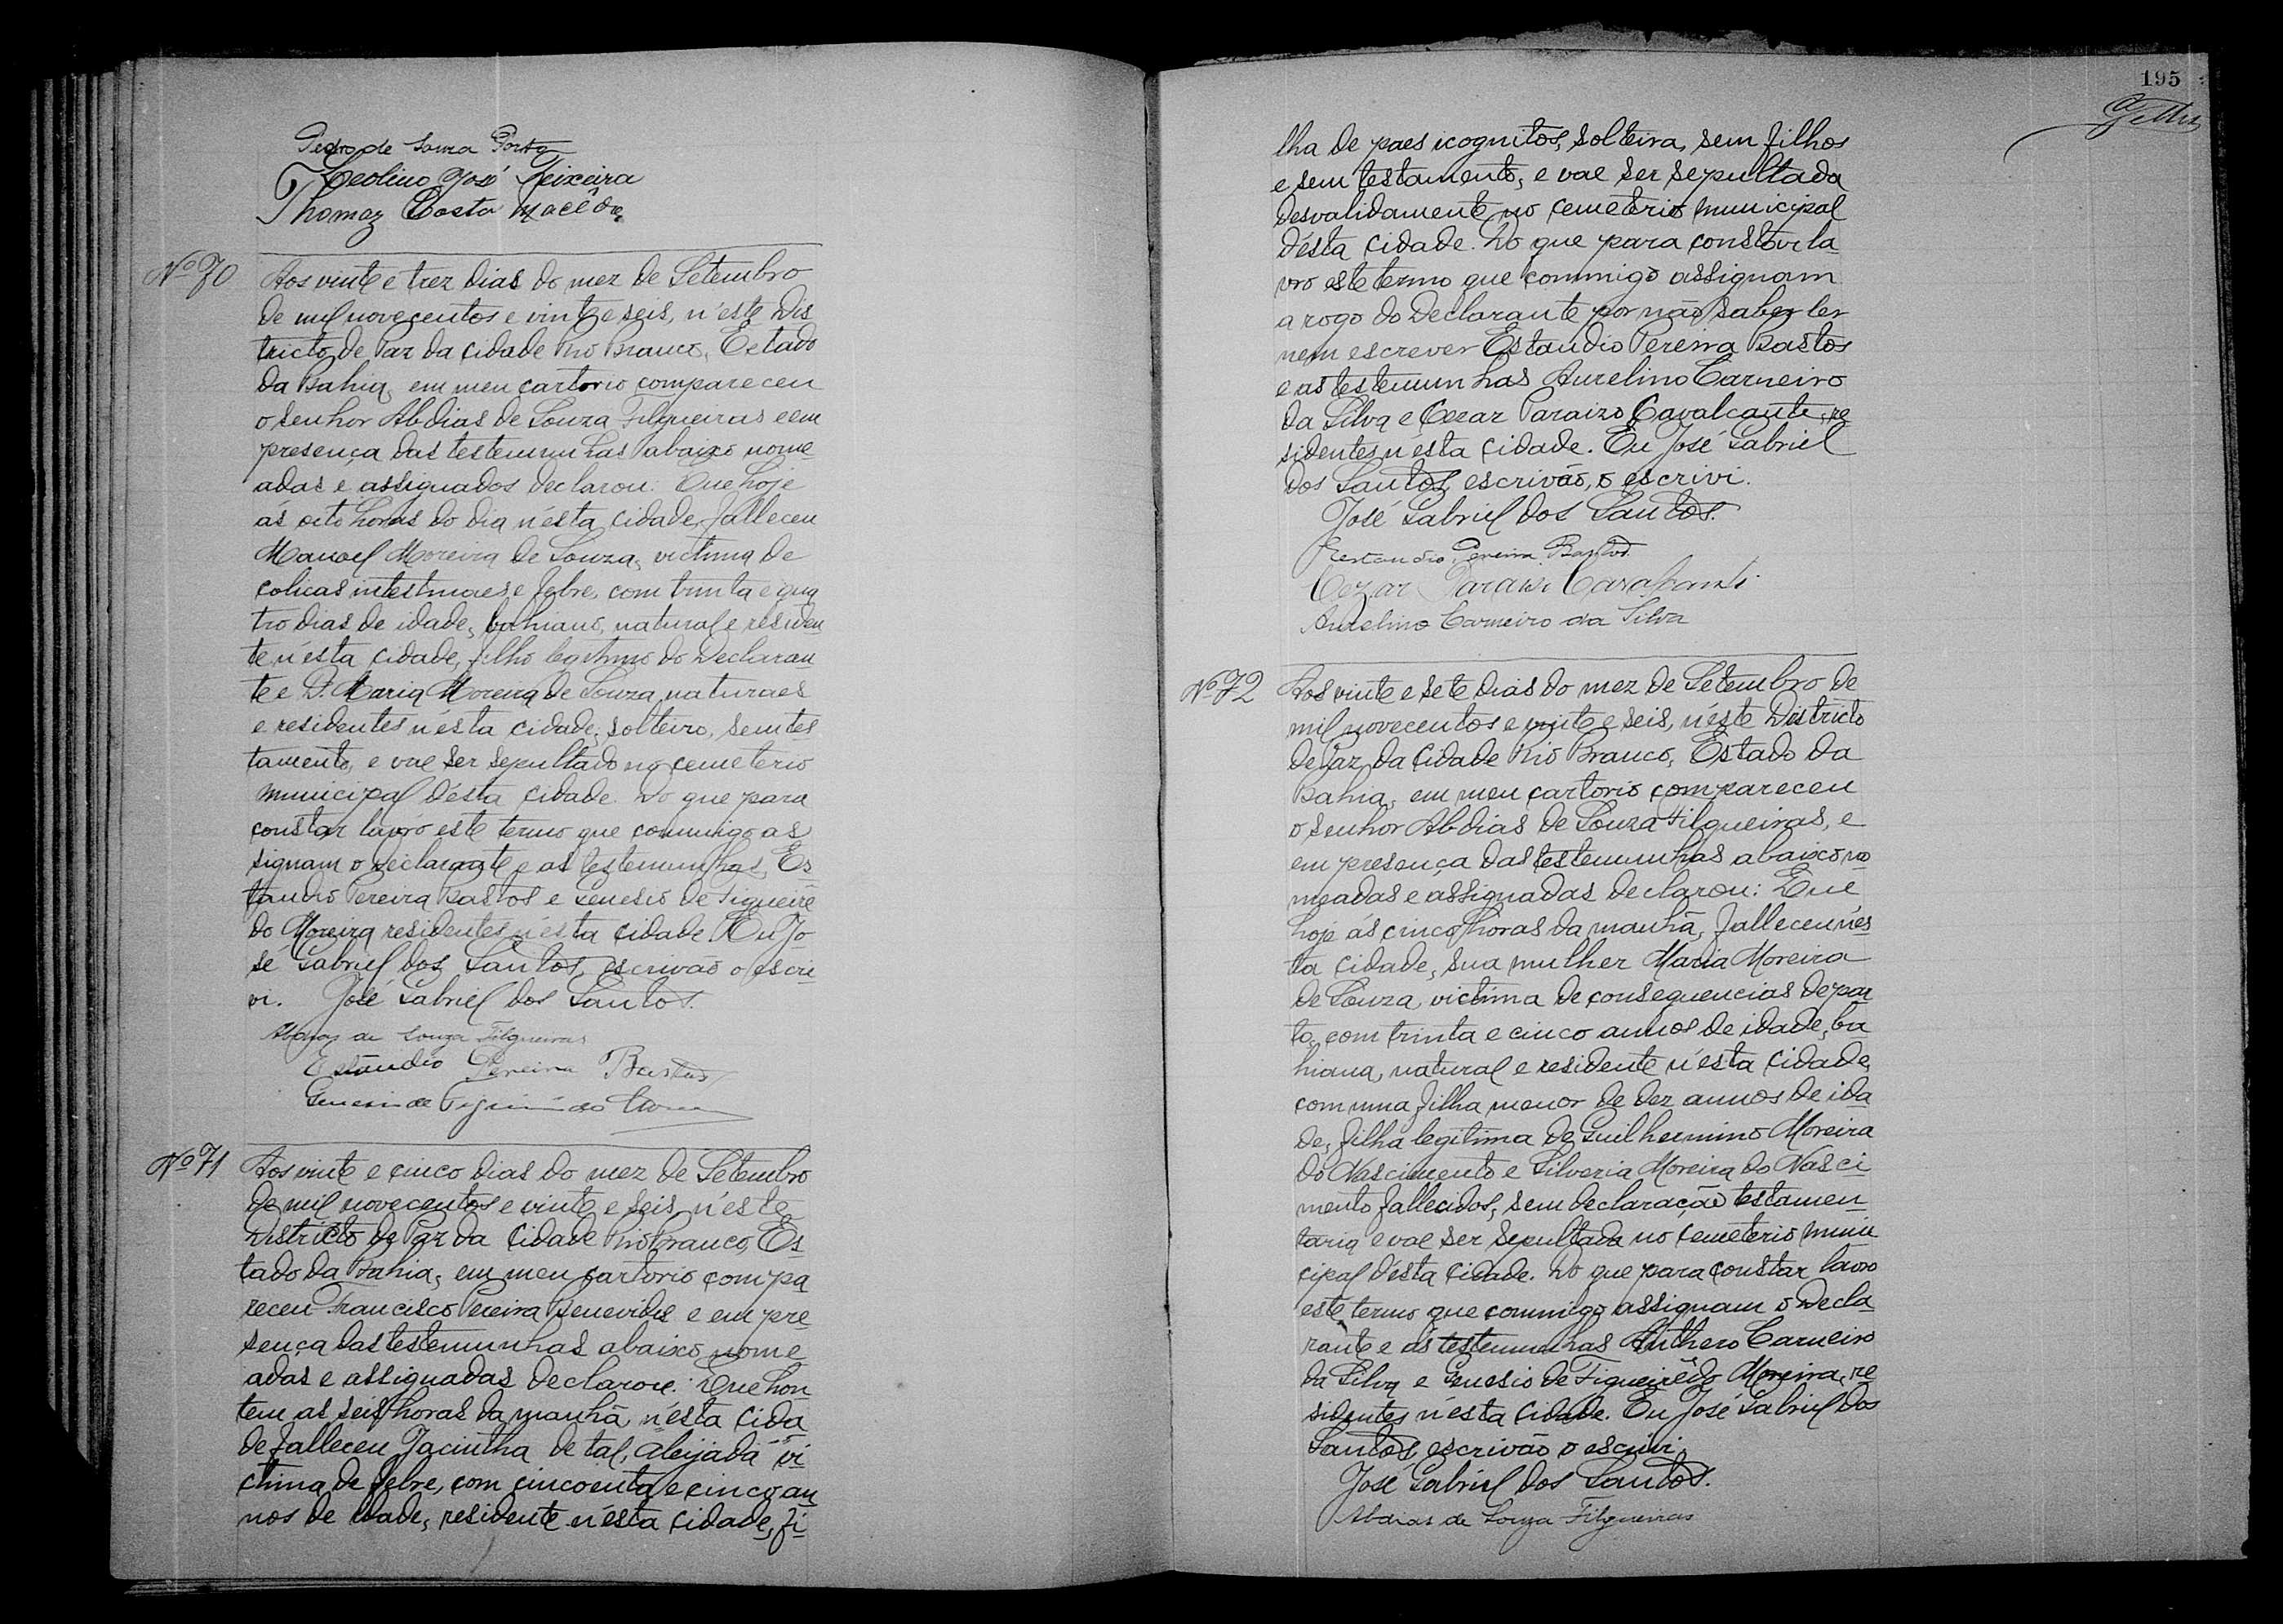 Pedro de Souza Porto
Teolino José Teixeira
Thomaz Costa Macêdo
Nº 70
Aos vinte e trez dias do mez de Setembro
de mil novecentos e vinte e seis, n'este Dis
tricto de Paz da Cidade Rio Branco, Estado
da Bahia, em meu cartorio compareceu
o senhor Abdias de Souza Filgueiras e em
presença das testemunhas abaixo nome
adas e assignados declarou: Que hoje
ás oito horas do dia n'esta cidade, falleceu
Manoel Moreira de Souza, victima de
colicas intestinaes e febre, com trinta e qua
tro dias de idade, bahiano, natural e residen
te n'esta cidade, filho legitimo do declaran
te e D. Maria Moreira de Souza, naturaes
e residentes n'esta cidade, solteiro, sem tes
tamento, e vae ser sepultado no cemeterio
municipal d'ésta cidade. Do que para
constar lavro este termo que commigo as
signam o declarante e as testemunhas, Es
tandio Pereira Bastos e Genesio de Figueirê
do Moreira residentes n'ésta cidade. Eu Jo
sé Gabriel dos Santos, escrivão o escre
vi. José Gabriel dos Santos.
Abdias de Souza Filgueiras
Estandio Pereira Bastos
Genesio de Figueirêdo Moreira
Nº 71
Aos vinte e cinco dias do mez de Setembro
de mil novecentos e vinte e seis, n'este
Districto de Paz da Cidade Rio Branco, Es
tado da Bahia, em meu cartorio compa
receu Francisco Pereira Benevides e em pre
sença das testemunhas abaixo nome
adas e assignadas declarou: Que hon
tem as seis horas da manhã, n'ésta cida
de falleceu Jacintha de tal, aleijada vi
ctima de febre, com cincoenta e cinco an
nos de idade, residente n'ésta cidade, fi
195
lha de paes icognitos, solteira, sem filhos
e sem testamento, e vae ser sepultada
desvalidamente no cemeterio municipal
d'ésta cidade. Do que para constar la
vro este termo que commigo assignam
a rogo do declarante por não saber ler
nem escrever Estandio Pereira Bastos
e as testemunhas Aurelino Carneiro
da Silva e Cezar Paraizo Cavalcante, re
sidentes n'ésta cidade. Eu José Gabriel
dos Santos, escrivão, o escrivi.
José Gabriel dos Santos.
Estandio Pereira Bastos.
Cezar Paraizo Cavalcanti
Aurelino Carneiro da Silva
Nº 72
Aos vinte e sete dias do mez de Setembro de
mil novecentos e vinte e seis, n'éste Districto
de Paz da Cidade Rio Branco, Estado da
Bahia, em meu cartorio compareceu
o senhor Abdias de Souza Filgueiras, e
em presença das testemunhas abaixo no
meadas e assignadas declarou: Que
hoje ás cinco horas da manhã, falleceu n'és
ta cidade, sua mulher Maria Moreira
de Souza, victima de consequencias de par
to, com trinta e cinco annos de idade, ba
hiana, natural e residente n'ésta cidade,
com uma filha menor de dez annos de ida
de, filha legitima de Guilhermino Moreira
do Nascimento e Silveria Moreira do Nasci
mento fallecidos, sem declaração testamen
taria e vae ser sepultada no cemeterio muni
cipal d'ésta cidade. Do que para constar lavro
este termo que commigo assignam o decla
rante e as testemunhas Anthero Carneiro
da Silva e Genesio de Figueirêdo Moreira, re
sidentes n'ésta cidade. Eu José Gabriel dos
Santos, escrivão o escrivi.
José Gabriel dos Santos.
Abdias de Souza Filgueiras